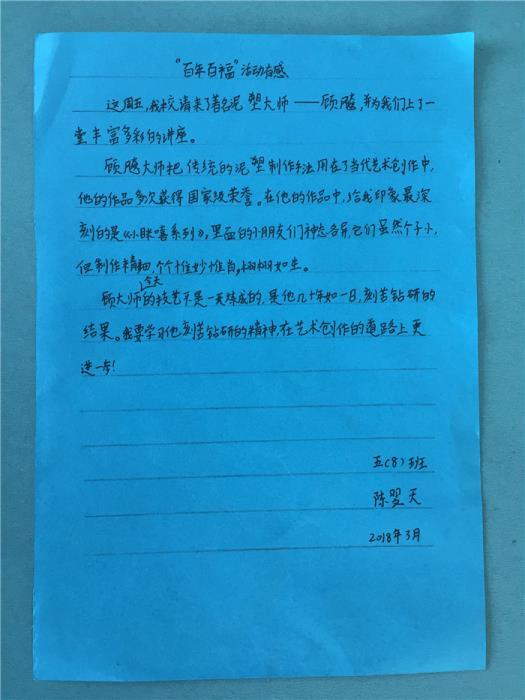 “百年百福”活动有感
这周五,我校请来了著名泥塑大师——顾飚,并为我们上了一
堂丰富多彩的讲座。
顾飚大师把传统的泥塑制作手法用在了当代艺术创作中,
他的作品多次获得国家级荣誉。在他的作品中,给我印象最深
刻的是《小眯嘻系列》,里面的小朋友们神态各异,它们虽然个子小,
但制作精细,个个惟妙惟肖,栩栩如生。
顾大师今天的技艺不是一天炼成的,是他几十年如一日,刻苦钻研的
结果。我要学习他刻苦钻研的精神,在艺术创作的道路上更
进一步!
五(8)班
陈翌天
2018年3月